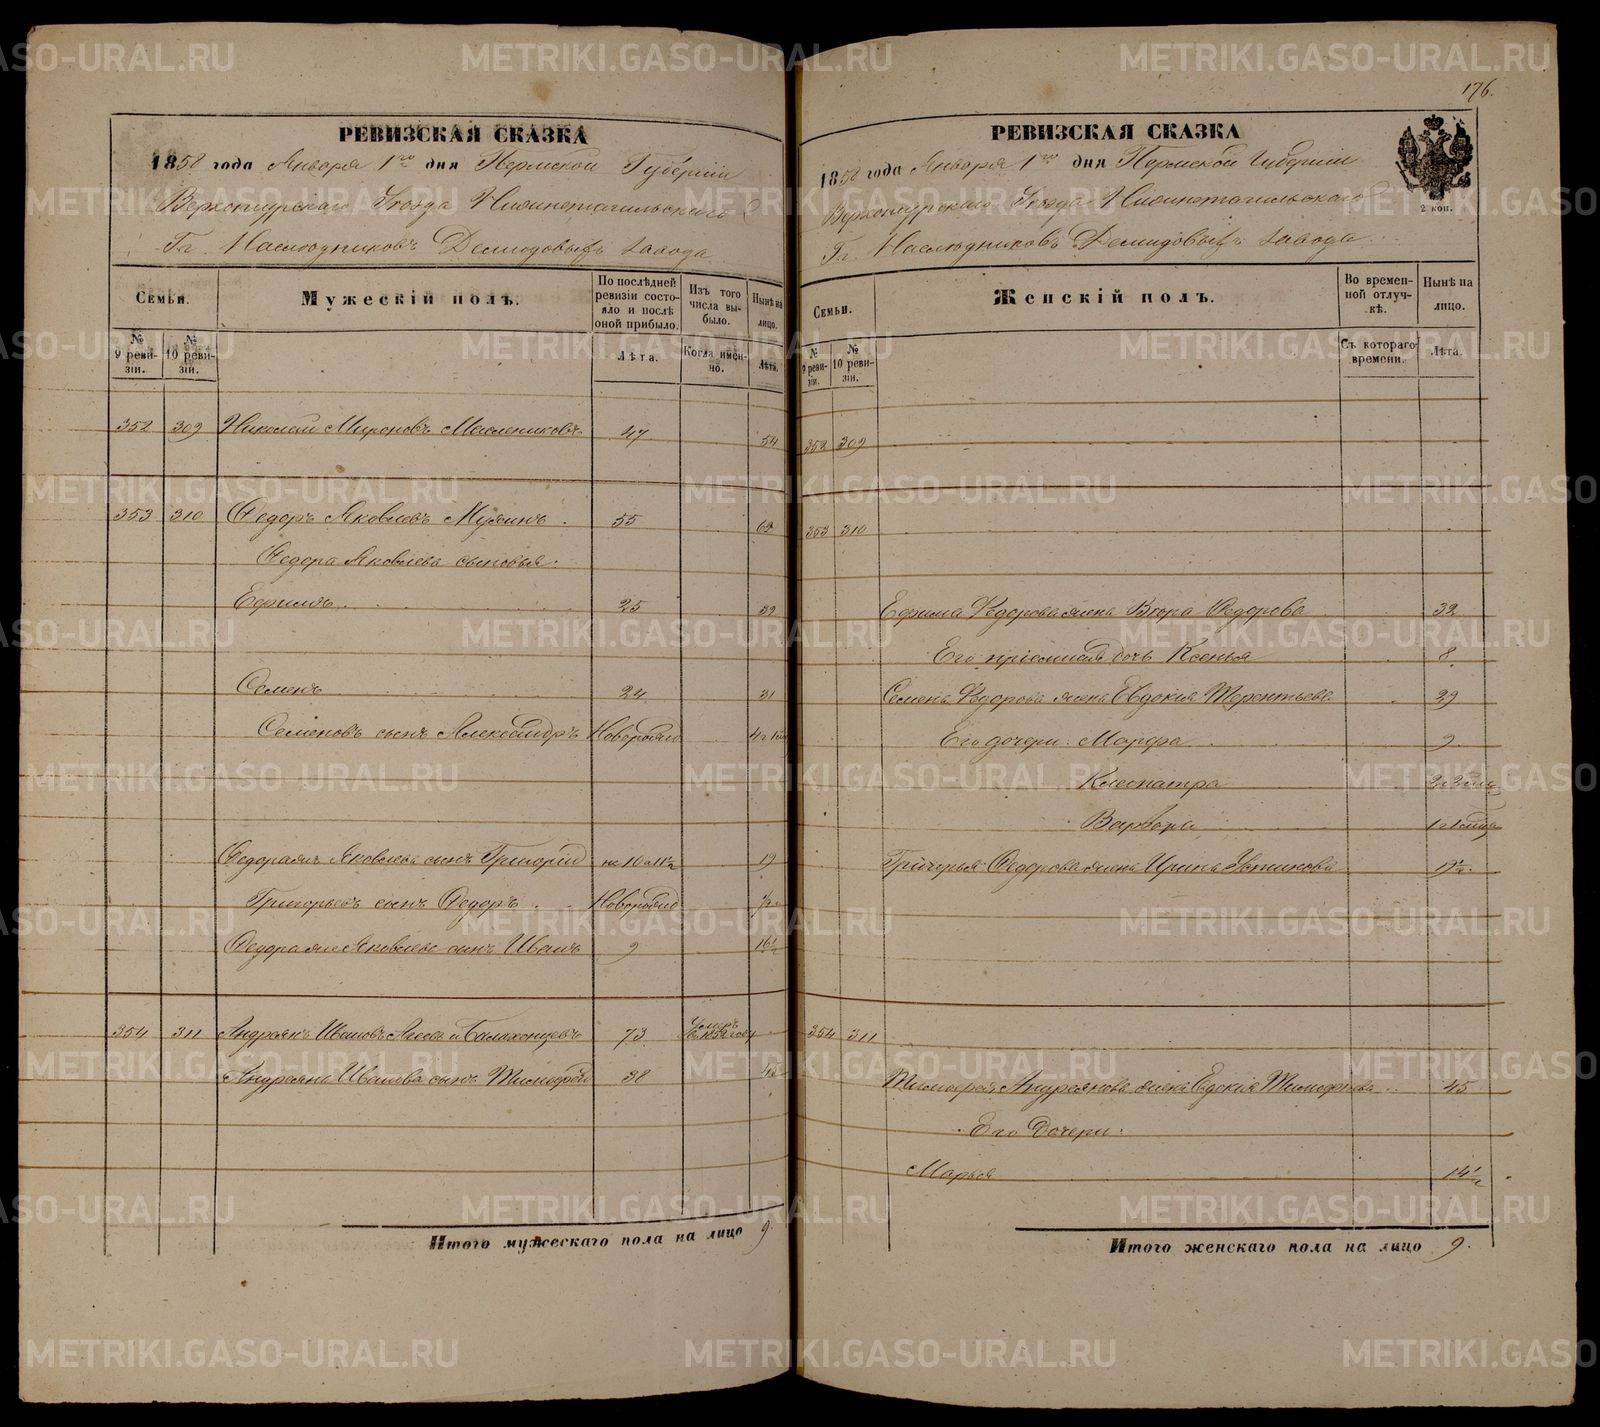 176.
РЕВИЗСКАЯ СКАЗКА
1858 года Января 1го дня Пермской Губерніи
Верхотурскаго Уѣзда Нижнетагильскаго
Гг. Наслѣдниковъ Демидовыхъ завода
Семьи.
Мужескій полъ.
По послѣдней ревизіи состояло и послѣ оной прибыло.
Изъ того числа выбыло.
Нынѣ на лицо.
№ 9 ревизіи.
№ 10 ревизіи.
Лѣта.
Когда именно.
Лѣта.
352 309 Николай Мироновъ Маслениковъ 47 54
353 310 Ѳедоръ Яковлевъ Мухинъ 55 62
Ѳедора Яковлева сыновья:
Ефимъ 25 32
Семенъ 24 31
Семеновъ сынъ Александръ Новорожд
Ѳедора Яковлева сынъ Григорій 19
Григорьевъ сынъ Ѳедоръ Новорожд 1/2
Ѳедора Яковлева сынъ Иванъ 9 16 1/2
354 311 Андреянъ Ивановъ Балахонцевъ 73 Умеръ въ 1852 году
Андреяна Иванова сынъ Тимофей 38 45
Итого мужескаго пола на лицо 9.
РЕВИЗСКАЯ СКАЗКА
1858 года Января 1го дня Пермской Губерніи
Верхотурскаго Уѣзда Нижнетагильскаго
Гг. Наслѣдниковъ Демидовыхъ завода
2 коп.
Семьи.
Женскій полъ.
Во временной отлучкѣ.
Нынѣ на лицо.
№ 9 ревизіи.
№ 10 ревизіи.
Съ котораго времени.
Лѣта.
352 309
353 310
Ефима Ѳедорова жена Ѳедорова 32
Его дочь Ксенья 8
Семена Ѳедорова жена Евдокія Терентьева 29
Его дочери: Марфа 9
Клеопатра
Варвара
Григорья Ѳедорова жена Ирина 19 1/2
354 311
Тимофея Андреянова жена Евдокія Тимофеева 45
Его Дочери:
Марья 14 1/2
Итого женскаго пола на лицо 9.
METRIKI.GASO-URAL.RU